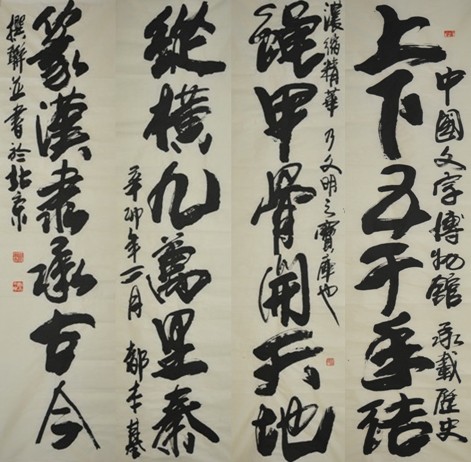 中國文字博物館 承載歷史
上下五千年結
濃縮精華 乃文明之寶庫也
繩甲骨開天地
縱橫九萬里秦
辛卯年一月 都本基
篆漢隸承古今
撰聯並書於北京